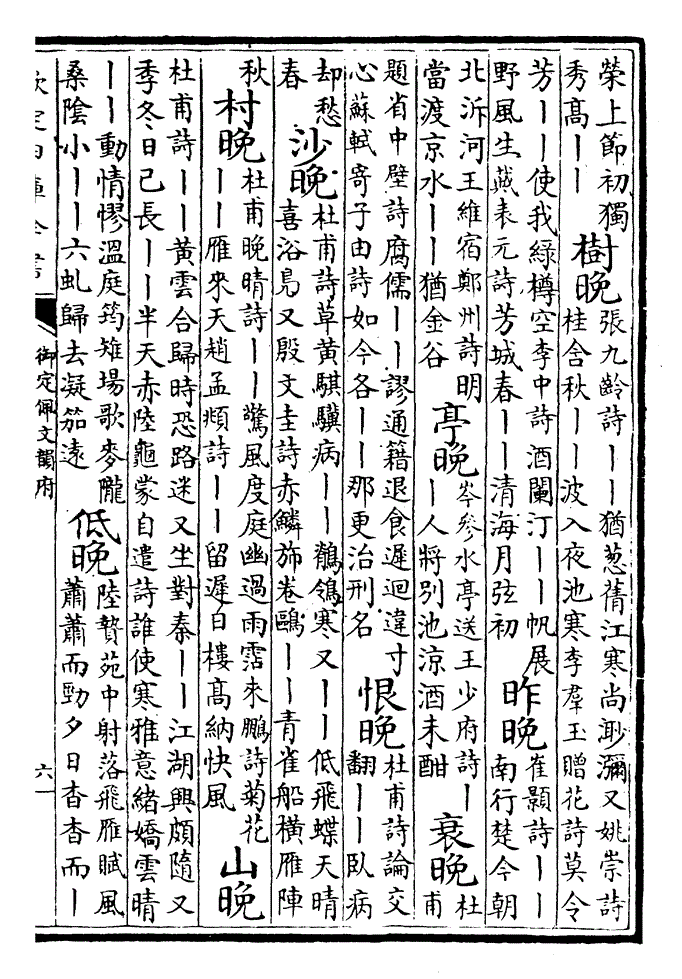 榮上節初獨
秀髙丨丨
樹晚
張九齡詩丨丨猶葱蒨江寒尚渺瀰又姚崇詩
桂含秋丨丨波入夜池寒李羣玉贈花詩莫令
芳丨丨使我綠樽空李中詩酒闌汀丨丨帆展
野風生戴表元詩芳城春丨丨清海月弦初
昨晚
崔顥詩丨丨
南行楚今朝
北泝河王維宿鄭州詩明
當渡京水丨丨猶金谷
亭晚
岑參水亭送王少府詩丨
丨人將別池涼酒未酣
衰晚
杜
甫
題省中壁詩腐儒丨丨謬通籍退食遲迴違寸
心蘇軾寄子由詩如今各丨丨那更治刑名
恨晚
杜甫詩論交
翻丨丨臥病
却愁
春
沙晚
杜甫詩草黃騏驥病丨丨鶺鴒寒又丨丨低飛蝶天晴
喜浴鳧又殷文圭詩赤鱗斾卷鷗丨丨青雀船橫雁陣
秋
村晚
杜甫晚晴詩丨丨驚風度庭幽過雨霑來鵬詩菊花
丨丨雁來天趙孟頫詩丨丨留遲日樓髙納快風
山晚
杜甫詩丨丨黃雲合歸時恐路迷又坐對秦丨丨江湖興頗隨又
季冬日已長丨丨半天赤陸龜蒙自遣詩誰使寒雅意緒嬌雲晴
丨丨動情憀溫庭筠雉場歌麥隴
桑陰小丨丨六虬歸去凝笳遠
低晚
陸贄苑中射落飛雁賦風
蕭蕭而勁夕日杳杳而丨
欽定四庫全書
御定佩文韻府
六